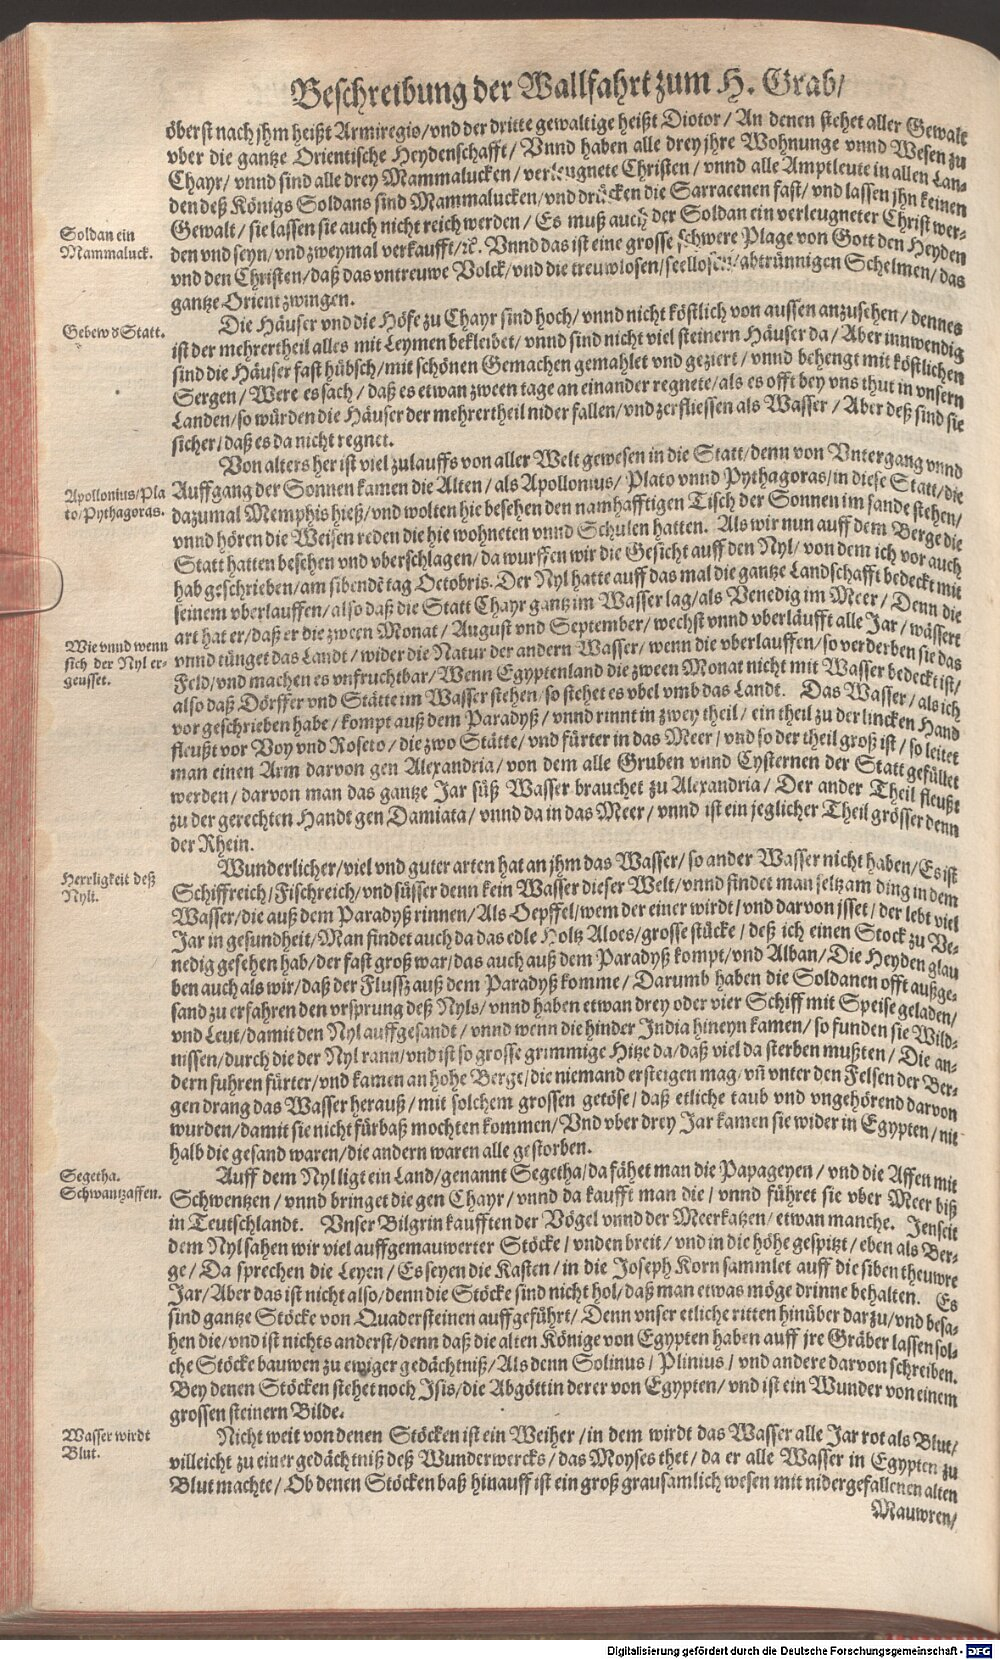 Beschreibung der Wallfahrt zum H. Grab/
öberst nach jhm heißt Armiregio/vnd der dritte gewaltige heißt Diotor/ An denen stehet aller Gewalt
vber die gantze Orientische Heydenschafft/ Vnnd haben alle drey jhre Wohnunge vnnd Wesen zu
Chayr/ vnnd sind alle drey Mammalucken/ verleugnete Christen/ vnnd alle Amptleute in allen Lan-
den deß Königs Soldans sind Mammalucken/vnd drücken die Sarracenen fast/ vnd lassen jhn keinen
Gewalt/ sie lassen sie auch nicht reich werden/ Es muß auch der Soldan ein verleugneter Christ wer-
Soldan ein
Mammaluck.
den vnd seyn/ vnd zweymal verkaufft/ꝛc. Vnnd das ist eine grosse schwere Plage von Gott den Heyden
vnd den Christen/ daß das vntreuwe Volck/ vnd die treuwlosen/seellosen/abtrünnigen Schelmen/ das
gantze Orient zwingen.
Gebew d Statt.
Die Häuser vnd die Höfe zu Chayr sind hoch/ vnnd nicht köstlich von aussen anzusehen/ denn es
ist der mehrertheil alles mit Leymen bekleibet/ vnnd sind nicht viel steinern Häuser da/ Aber innwendig
sind die Häuser fast hübsch/mit schönen Gemachen gemahlet vnd geziert/ vnnd behengt mit köstlichen
Sergen/ Were es sach/ daß es etwan zween tage an einander regnete/als es offt bey vns thut in vnsern
Landen/so würden die Häuser der mehrertheil nider fallen/vnd zerfliessen als Wasser/ Aber deß sind sie
sicher/daß es da nicht regnet.
Von alters her ist viel zulauffs von aller Welt gewesen in die Statt/denn von Vntergang vnnd
Apollonius/Pla
to/Pythagoras.
Auffgang der Sonnen kamen die Alten/ als Apollonius/ Plato vnnd Pythagoras/in diese Statt/die
dazumal Memphis hieß/vnd wolten hie besehen den namhafftigen Tisch der Sonnen im sande stehen/
vnnd hören die Weisen reden die hie wohneten vnnd Schulen hatten. Als wir nun auff dem Berge die
Statt hatten besehen vnd vberschlagen/ da wurffen wir die Gesicht auff den Nyl/ von dem ich vor auch
hab geschrieben/am sibendē tag Octobris. Der Nyl hatte auff das mal die gantze Landschafft bedeckt mit
seinem vberlauffen/also daß die Statt Chayr gantz im Wasser lag/als Venedig im Meer/ Denn die
art hat er/daß er die zween Monat/ August vnd September/ wechst vnnd vberläufft alle Jar/ wässert
Wie vnnd wenn
sich der Nyl er-
geusset.
vnnd tünget das Landt/ wider die Natur der andern Wasser/ wenn die vberlauffen/so verderben sie das
Feld/vnd machen es vnfruchtbar/Wenn Egyptenland die zween Monat nicht mit Wasser bedeckt ist/
also daß Dörffer vnd Stätte im Wasser stehen/ so stehet es vbel vmb das Landt. Das Wasser/ als ich
vor geschrieben habe/ kompt auß dem Paradyß/ vnnd rinnt in zwey theil/ ein theil zu der lincken Hand
fleußt vor Voy vnd Roseto/ die zwo Stätte/ vnd fürter in das Meer/ vnd so der theil groß ist/ so leitet
man einen Arm darvon gen Alexandria/ von dem alle Gruben vnnd Cysternen der Statt gefüllet
werden/ darvon man das gantze Jar süß Wasser brauchet zu Alexandria/ Der ander Theil fleußt
zu der gerechten Handt gen Damiata/ vnnd da in das Meer/ vnnd ist ein jeglicher Theil grösser denn
der Rhein.
Herrligkeit deß
Nyli.
Wunderlicher/viel vnd guter arten hat an jhm das Wasser/ so ander Wasser nicht haben/Es ist
Schiffreich/Fischreich/vnd süsser denn kein Wasser dieser Welt/vnnd findet man seltzam ding in dem
Wasser/die auß dem Paradyß rinnen/Als Oepffel/wem der einer wirdt/vnd darvon isset/ der lebt viel
Jar in gesundheit/Man findet auch da das edle Holtz Aloes/grosse stücke/ deß ich einen Stock zu Ve-
nedig gesehen hab/der fast groß war/das auch auß dem Paradyß kompt/vnd Alban/Die Heyden glau
ben auch als wir/daß der Flussz auß dem Paradyß komme/ Darumb haben die Soldanen offt außge-
sand zu erfahren den vrsprung deß Nyls/ vnnd haben etwan drey oder vier Schiff mit Speise geladen/
vnd Leut/damit den Nyl auffgesandt/ vnnd wenn die hinder India hineyn kamen/ so funden sie Wild-
nissen/durch die der Nyl rann/vnd ist so grosse grimmige Hitze da/daß viel da sterben mußten/ Die an-
dern fuhren fürter/vnd kamen an hohe Berge/die niemand ersteigen mag/vn̄ vnter den Felsen der Ber-
gen drang das Wasser herauß/ mit solchem grossen getöse/ daß etliche taub vnd vngehörend darvon
wurden/damit sie nicht fürbaß mochten kommen/ Vnd vber drey Jar kamen sie wider in Egypten/ nit
halb die gesand waren/die andern waren alle gestorben.
Segetha.
Schwantzaffen.
Auff dem Nyl ligt ein Land/genannt Segetha/da fähet man die Papageyen/ vnd die Affen mit
Schwentzen/ vnnd bringet die gen Chayr/ vnnd da kaufft man die/ vnnd führet sie vber Meer biß
in Teutschlandt. Vnser Bilgrin kaufften der Vögel vnnd der Meerkatzen/ etwan manche. Jenseit
dem Nyl sahen wir viel auffgemauwerter Stöcke/ vnden breit/ vnd in die höhe gespitzt/ eben als Ber-
ge/ Da sprechen die Leyen/ Es seyen die Kasten/ in die Joseph Korn sammlet auff die siben theuwre
Jar/Aber das ist nicht also/denn die Stöcke sind nicht hol/daß man etwas möge drinne behalten. Es
sind gantze Stöcke von Quadersteinen auffgeführt/ Denn vnser etliche ritten hinüber darzu/vnd besa-
hen die/vnd ist nichts anderst/denn daß die alten Könige von Egypten haben auff jre Gräber lassen sol-
che Stöcke bauwen zu ewiger gedächtniß/Als denn Solinus/ Plinius/ vnd andere darvon schreiben.
Bey denen Stöcken stehet noch Isis/die Abgöttin derer von Egypten/ vnd ist ein Wunder von einem
grossen steinern Bilde.
Wasser wirdt
Blut.
Nicht weit von denen Stöcken ist ein Weiher/in dem wirdt das Wasser alle Jar rot als Blut/
villeicht zu einer gedächtniß deß Wunderwercks/das Moyses thet/ da er alle Wasser in Egypten zu
Blut machte/ Ob denen Stöcken baß hinauff ist ein groß grausamlich wesen mit nidergefallenen alten
Mauwren/
Digitalisierung gefördert durch die Deutsche Forschungsgemeinschaft - DFG